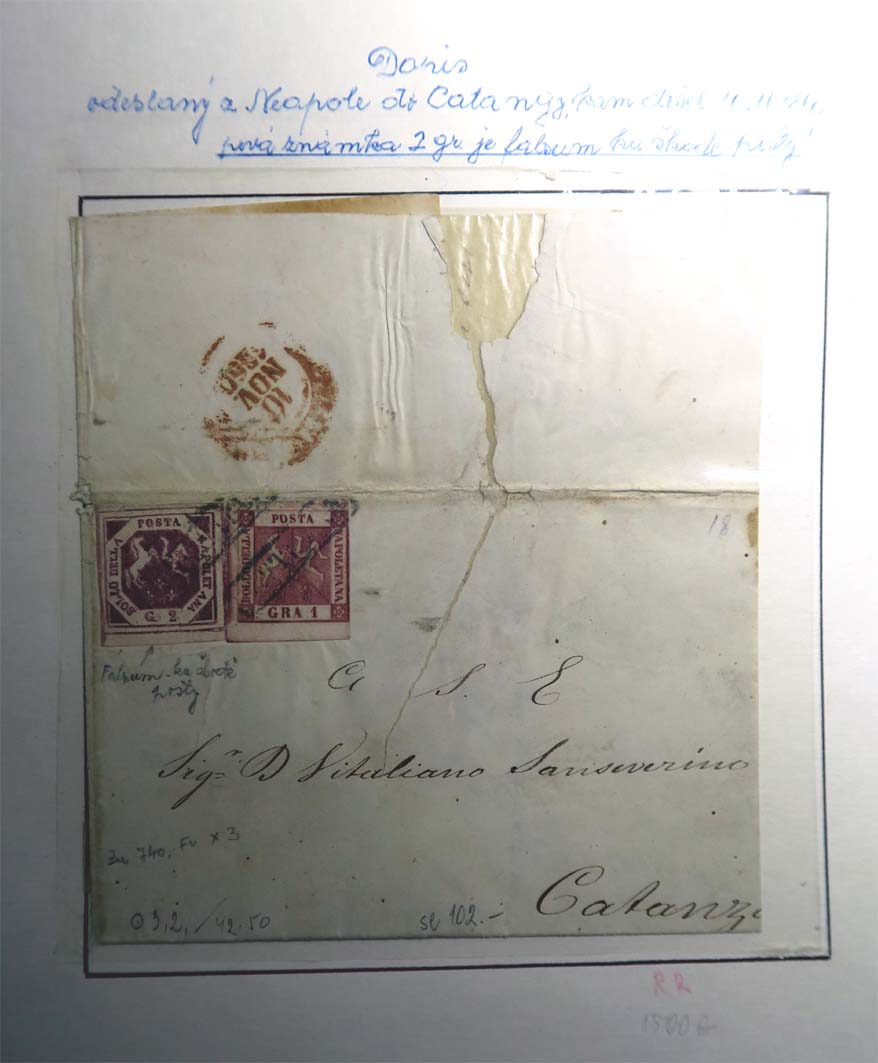 Dopis
odeslaný z Neapole do Catanyz, kam došel
prvá známka 2 gr je falsum ku škodě pošty
1860
NOV
10
POSTA
BOLLO DELLA
NAPOLETANA
G. 2
POSTA
BOLLO DELLA
NAPOLETANA
GRA 1
18
Falsum ku škodě
pošty
A S. E
Sigr. D Vitaliano Sanseverino
Zu 740, Fu x 3
Catanz
03,2,/42.50
se 102.-
RR